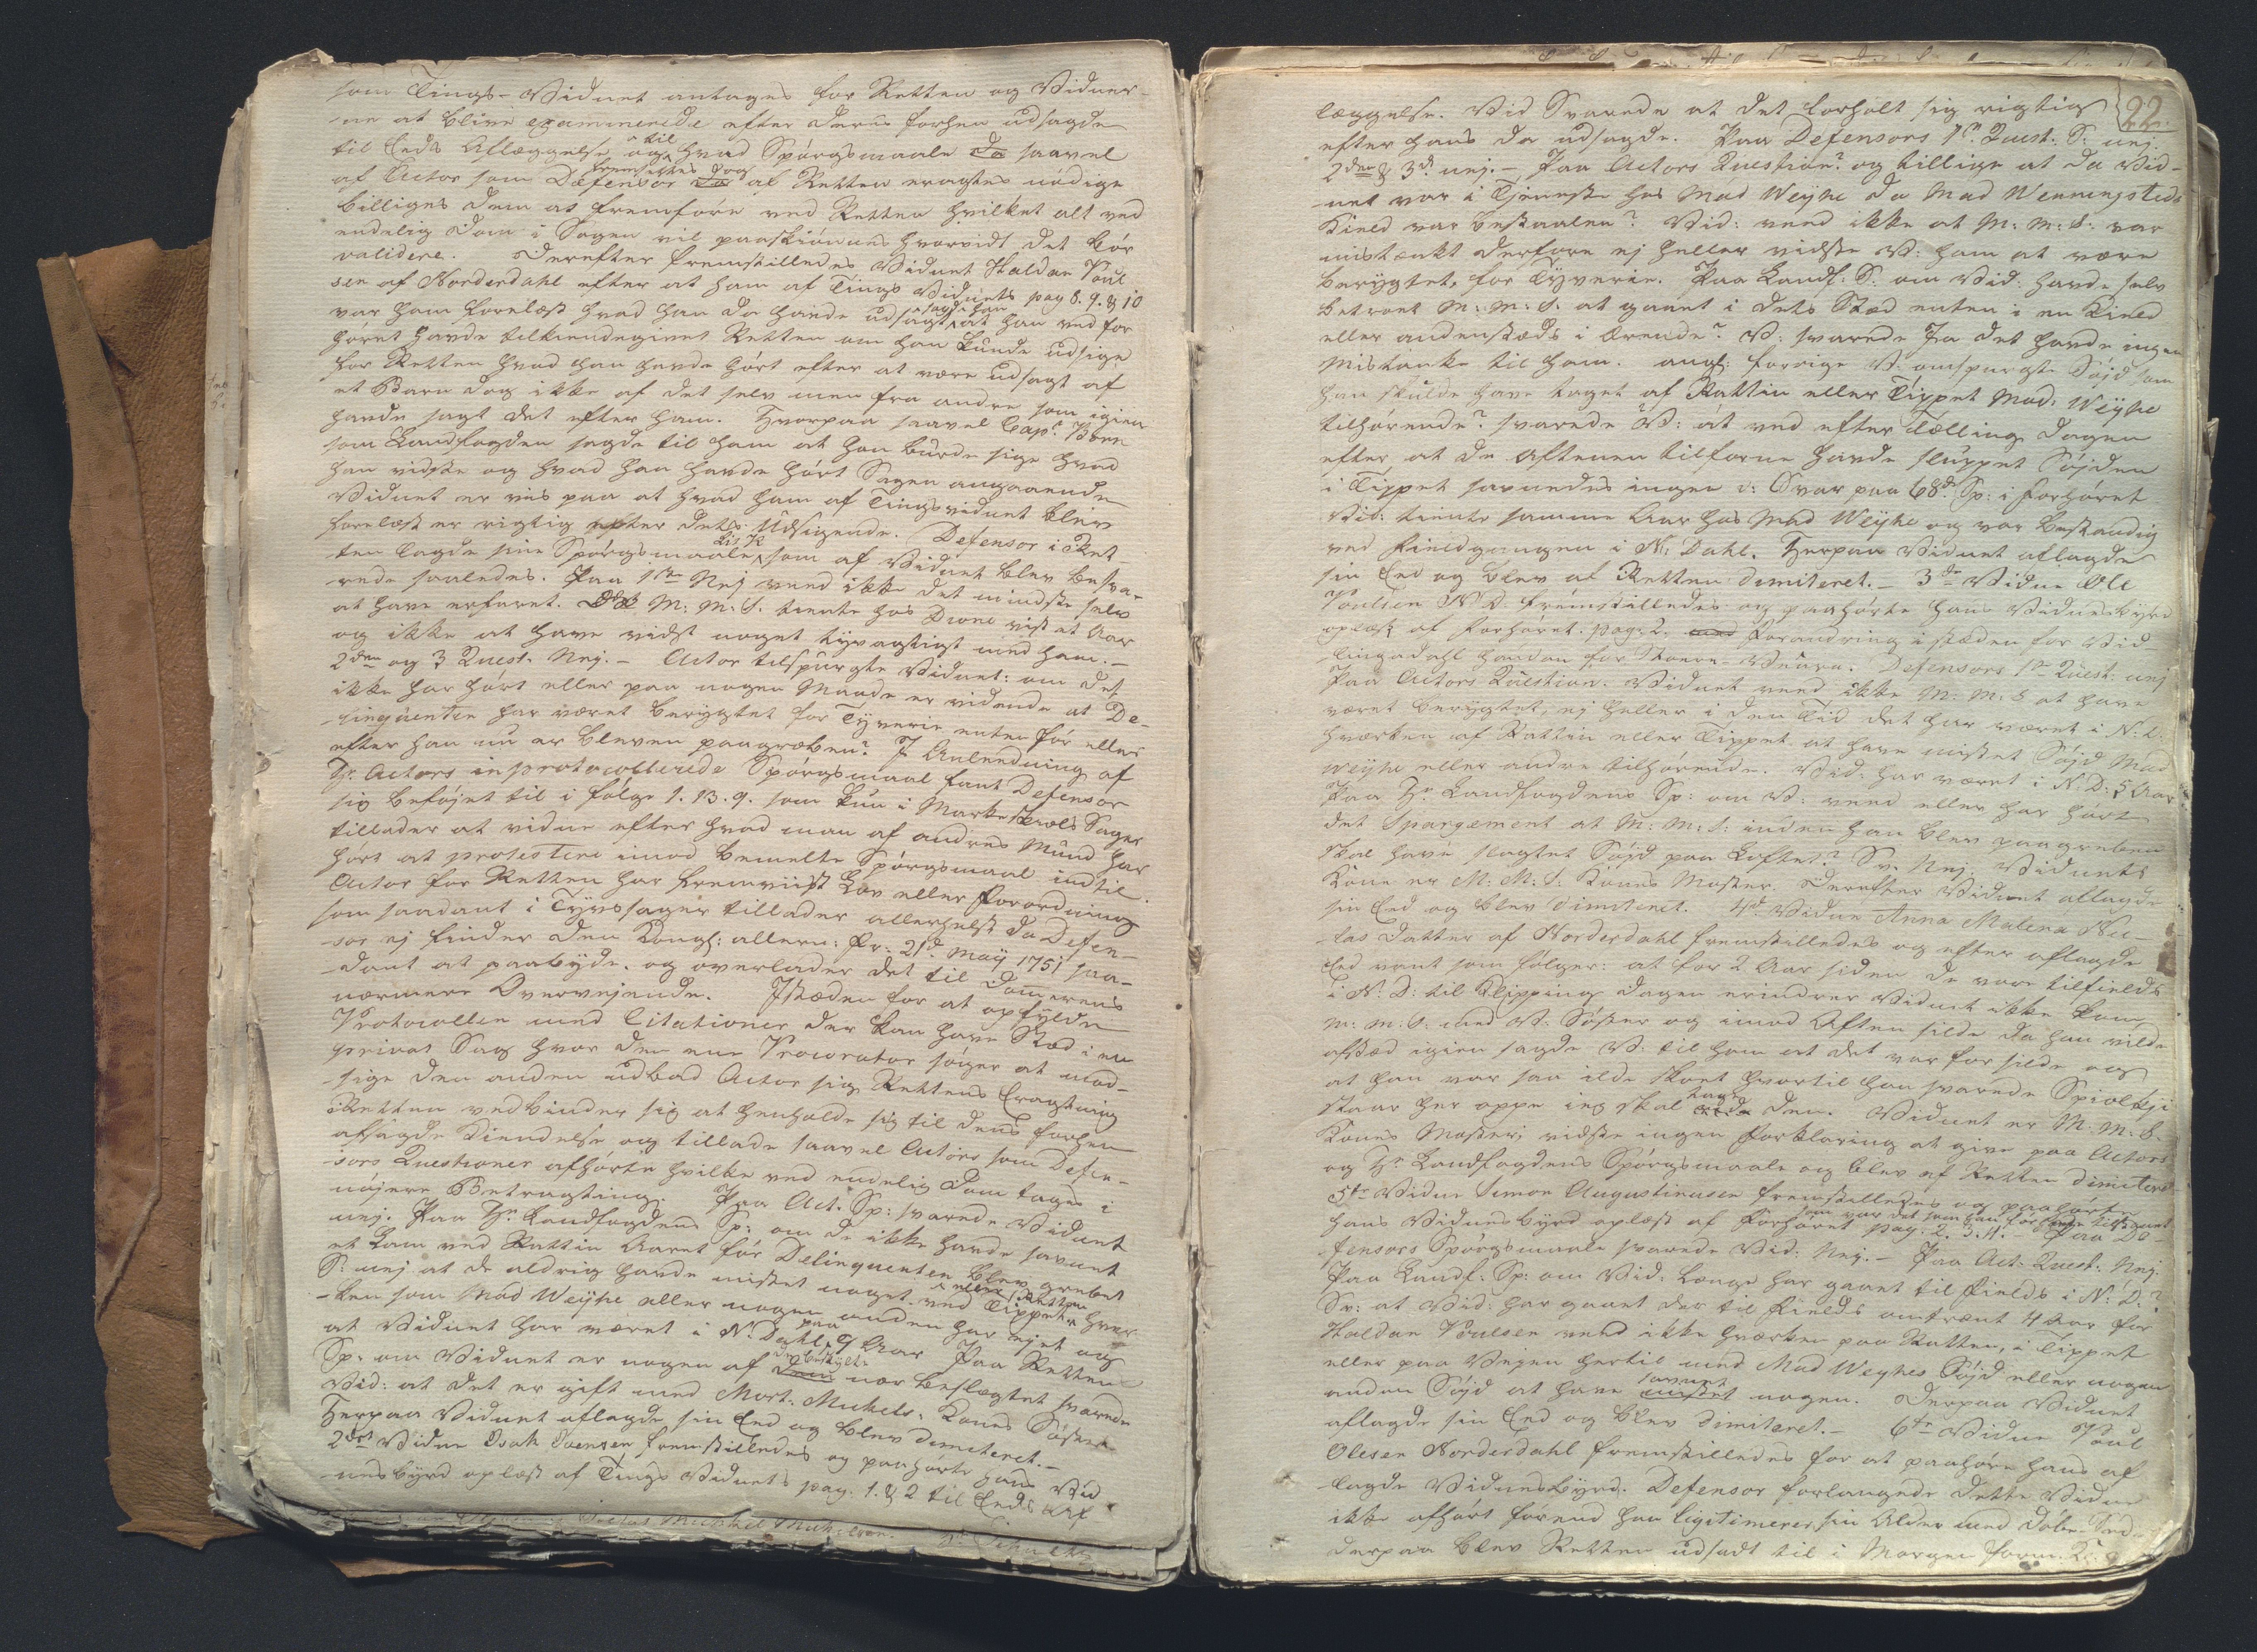 som Tings-Vidnet antages for Retten og Vidner-
ne at blive examinerede efter deres forhen udsagde
til Eeds Aflæggelse og til hvad Spørgsmaale da saavel
af Actor som Defensor fremsættes dog af Retten eragtes nødige
billiges dem at fremføre ved Retten hvilket alt ved
endelig Dom i Sagen vil paaskiønnes hvorvidt det bør
validere. Derefter fremstilledes Vidnet Haldan Poul
sen af Norderdahl efter at ham af Tings Vidnets pag 8. 9. & 10
var ham forelæst hvad han da havde udsagt sagde han at han ved for
høret havde tilkiendegivet Retten om han kunde udsige
for Retten hvad han havde hørt efter at være udsagt af
et Barn dog ikke af det selv men fra andre som igien
havde sagt det efter ham. Hvorpaa saavel Capt. Born
som Landfogden sagde til ham at han burde sige hvad
han vidste og hvad han havde hørt Sagen angaaende
Vidnet er vis paa at hvad ham af Tingsvidnet blev
forelæst er rigtig efter dets Udsigende. Defensor i Ret-
ten lagde sine Spørgsmaale Lit. K som af Vidnet blev besva-
rede saaledes. Paa 1ste Nej veed ikke det mindste selv
at have erfaret. M: M: S. tiente hos Dione vist et Aar
og ikke at have vidst noget tyvagtigt med ham. -
2den og 3 Quest. Nej. - Actor tilspurgte Vidnet: om det
ikke har hørt eller paa nogen Maade er vidende at De-
linqventen har været berygtet for Tyverie enten før eller
efter han nu er bleven paagreben? I Anledning af
Hr. Actors inprotocollerede Spørgsmaal fant Defensor
sig beføjet til i følge 1. 13. 9. som kun i Markeskiels Sager
tillader at vidne efter hvad man af andres Mund har
hørt at protestere imod bemelte Spørgsmaal indtil
Actor for Retten har fremviist Lov eller Forordning
som saadant i Tyvssager tillader allerhelst da Defen-
sor ej finder den Kongl: allern: Fr. 21de May 1751 saa-
dant at paabyde, og overlader det til Dommerens
nærmere Overvejende. Istæden for at opfylde
Protocollen med Citationer der kan have Sted i en
privat Sag hvor den ene Procurator søger at mod-
sige den anden udbad Actor sig Rettens Eragtning
Retten vedbinder sig at henholde sig til dens forhen
afsagde Kiendelse og tillade saavel Actors som Defen-
sors Questioner afhørte hvilke ved endelig Dom tages i
nøjere Betragtning. Paa Act. Sp: svarede Vidnet
nej. Paa Hr. Landfogdens Sp: om de ikke havde savnet
et Lam ved Rattin Aaret før Delinquenten blev grebet
S: nej at de aldrig havde mistet noget ved Tippet eller Rattin hver-
ken som Mad Weyhe eller nogen anden har ejet og
at Vidnet har været i N. Dahl paa 9 Aar Paa Retten
Sp: om Vidnet er nogen af de beskyldte nær beslægtet svarede
Vid: at det er gift med Mort. Mickels. Kones Søster
Herpaa Vidnet aflagde sin Eed og blev dimiteret. -
2det Vidne Isak Joensen fremstilledes og paahørte hans Vid
nesbyrd oplæst af Tings Vidnets pag. 1. & 2 til Eeds Af-
22.
læggelse. Vid Svarede at det forholt sig rigtig
efter hans da udsagde. Paa Defensors 1ste Quest. S. nej.
2den & 3de nej. - Paa Actors Question? og tillige at da Vid-
net var i Tieneste hos Mad Weyhe da Mad Wenningsteds
Kield var bestaalen? Vid: veed ikke at M: M: S: var
mistænkt derfore ej heller vidste V: ham at være
berygtet for Tyverie. Paa Landf: S. om Vid: havde selv
betroet M: M: S. at gaaet i dets Sted enten i en Kield
eller andenstæds i Ærende? V: svarede Ja det havde ingen
Mistanke til ham. angl: forrige V. omspurgte Søjd som
han skulde have taget af Rattin eller Tippet Mad: Weyhe
tilhørende? svarede V: at ved efter Tælling Dagen
efter at de Aftenen tilforne havde sluppet Søjden
i Tippet savnedes ingen v: Svar paa 68de Sp: i Forhøret
Vid: tiente samme Aar hos Mad Weyhe og var bestandig
ved Fieldgangen i N: Dahl. Herpaa Vidnet aflagde
sin Eed og blev af Retten dimiteret. - 3de Vidne Ole
Poulsen N D. fremstilledes og paahørte hans Vidnesbyrd
oplæst af Forhøret. pag. 2. Forandring i stæden for Vid-
Paa Actors Question. Vidnet veed ikke M: M: S at have
været berygtet, ej heller i den Tid det har været i N: D:
hverken af Rattin eller Tippet at have mistet Søjd Mad
Weyhe eller andre tilhørende. Vid: har været i N: D: 5 Aar
Paa Hr. Landfogdens Sp: om V: veed eller har hørt
det Spargement at M: M: S: inden han blev paagreben
skal have slagtet Søjd paa Loftet? Sv. Nej: Vidnets
Kone er M: M: S: Kones Moster. Derefter Vidnet aflagde
sin Eed og blev dimiteret. 4de Vidne Anna Malena Nic-
las Datter af Norderdahl fremstilledes og efter aflagde
Eed vant som følger: at for 2 Aar siden de vare tilfields
i N: D: til Klipping Dagen erindrer Vidnet ikke kom
M: M: S: med V. Søster og imod Aften silde da han vilde
afsted igien sagde V. til ham at det var for silde og
at han var saa ilde skoet hvortil han svarede Spiolkji
staar her oppe jeg skal tage den. Vidnet er M: M: S.
Kones Moster, vidste ingen Forklaring at give paa Actors
og Hr. Landfogdens Spørgsmaale og blev af Retten dimiteret
5te Vidne Simon Augustinusen fremstilledes og paahørte
hans Vidnesbyrd oplæst af Forhøret pag. 2. 3. 4. - Paa De-
fensors Spørgsmaale svarede Vid: Nej. - Paa Act. Quest. Nej.
Paa Landf: Sp: om Vid. længe har gaaet til Fields i N: D.?
Sv: at Vid: har gaaet der til Fields omtrent 4 Aar for
Haldan Poulsen veed ikke hverken paa Rattin, i Tippet
eller paa Vejen hertil med Mad Weyhes Søjd eller nogen
anden Søjd at have savnet nogen. Derpaa Vidnet
aflagde sin Eed og blev dimiteret. - 6te Vidne Poul
Olesen Norderdahl fremstilledes for at paahøre hans af
lagde Vidnesbyrd. Defensor forlangede dette Vidne
ikke afhørt førend han legitimerer sin Alder med Døbe-Sed
derpaa blev Retten udsadt til i Morgen Form.